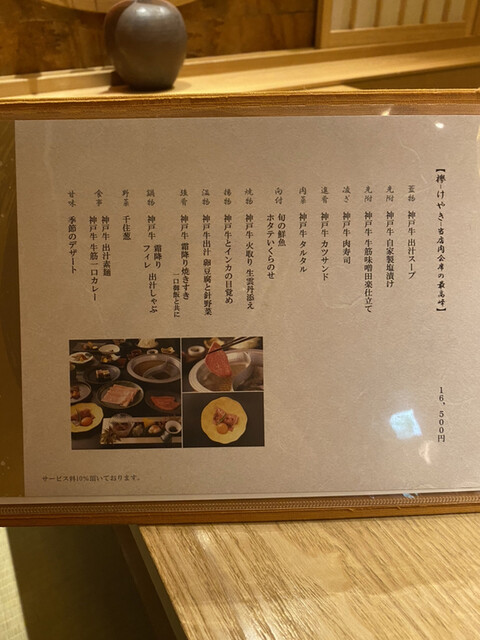 【欅~けやき~当店肉会席の最高峰】
16,500円
蓋物 神戸牛 出汁スープ
先附 神戸牛 自家製塩漬け
先附 神戸牛 牛筋味噌田楽仕立て
凌ぎ 神戸牛 肉寿司
進肴 神戸牛 カツサンド
肉菜 神戸牛 タルタル
向付 旬の鮮魚
ホタテいくらのせ
焼物 神戸牛 火取り 生雲丹添え
揚物 神戸牛とインカの目覚め
温物 神戸牛出汁 卵豆腐と針野菜
強肴 神戸牛 霜降り焼きすき
一口御飯と共に
鍋物 神戸牛 霜降り 出汁しゃぶ
フィレ
野菜 千住葱
食事 神戸牛 出汁素麺
神戸牛 牛筋一口カレー
甘味 季節のデザート
サービス料10%頂いております。